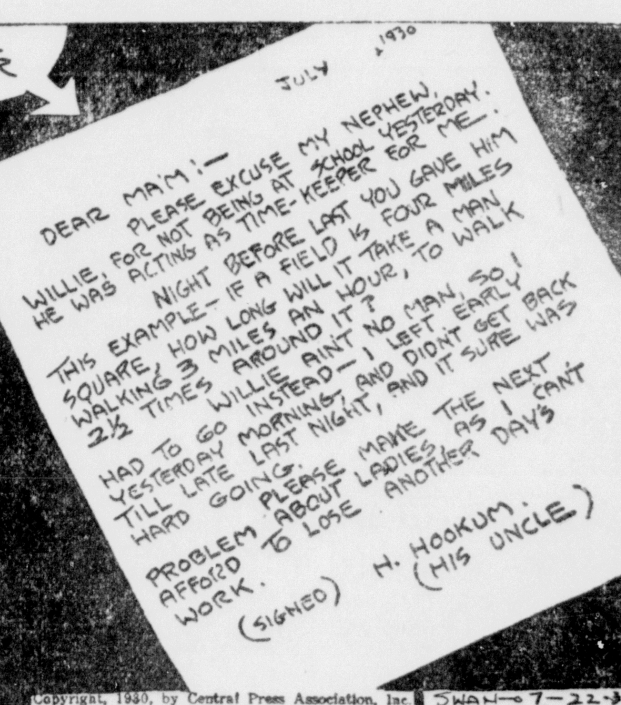 JULY 1930
DEAR MA'M:—
PLEASE EXCUSE MY NEPHEW,
WILLIE, FOR NOT BEING AT SCHOOL YESTERDAY.
HE WAS ACTING AS TIME-KEEPER FOR ME.
NIGHT BEFORE LAST YOU GAVE HIM
THIS EXAMPLE— IF A FIELD IS FOUR MILES
SQUARE, HOW LONG WILL IT TAKE A MAN
WALKING 3 MILES AN HOUR, TO WALK
2½ TIMES AROUND IT?
WILLIE AIN'T NO MAN, SO I
HAD TO GO INSTEAD— I LEFT EARLY
YESTERDAY MORNING, AND DIDN'T GET BACK
TILL LATE LAST NIGHT, AND IT SURE WAS
HARD GOING.
PLEASE MAKE THE NEXT
PROBLEM ABOUT LADIES, AS I CAN'T
AFFORD TO LOSE ANOTHER DAY'S
WORK.
(SIGNED) H. HOOKUM.
(HIS UNCLE)
Copyright, 1930, by Central Press Association, Inc.
SWAN—7-22-